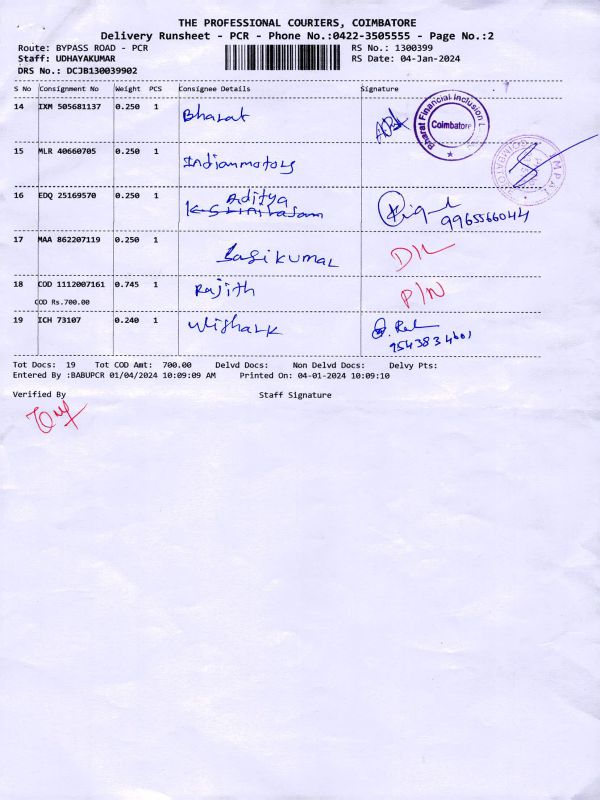 THE PROFESSIONAL COURIERS, COIMBATORE
Delivery Runsheet - PCR - Phone No.:0422-3505555 - Page No.:2
Route: BYPASS ROAD - PCR RS No.: 1300399
Staff: UDHAYAKUMAR RS Date: 04-Jan-2024
DRS No.: DCJB130039902
S No Consignment No Weight PCS Consignee Details Signature
14 IXM 505681137 0.250 1 Bharat
Bharat Financial Inclusion L
Coimbatore
15 MLR 40660705 0.250 1 Indianmotors
16 EDQ 25169570 0.250 1 Aditya
K. Srinivasam 9965566044
17 MAA 862207119 0.250 1 Sasikumar DL
18 COD 1112007161 0.745 1 Rajith P/N
COD Rs.700.00
19 ICH 73107 0.240 1 Wishark
9543834601
Tot Docs: 19 Tot COD Amt: 700.00 Delvd Docs: Non Delvd Docs: Delvy Pts:
Entered By :BABUPCR 01/04/2024 10:09:09 AM Printed On: 04-01-2024 10:09:10
Verified By Staff Signature